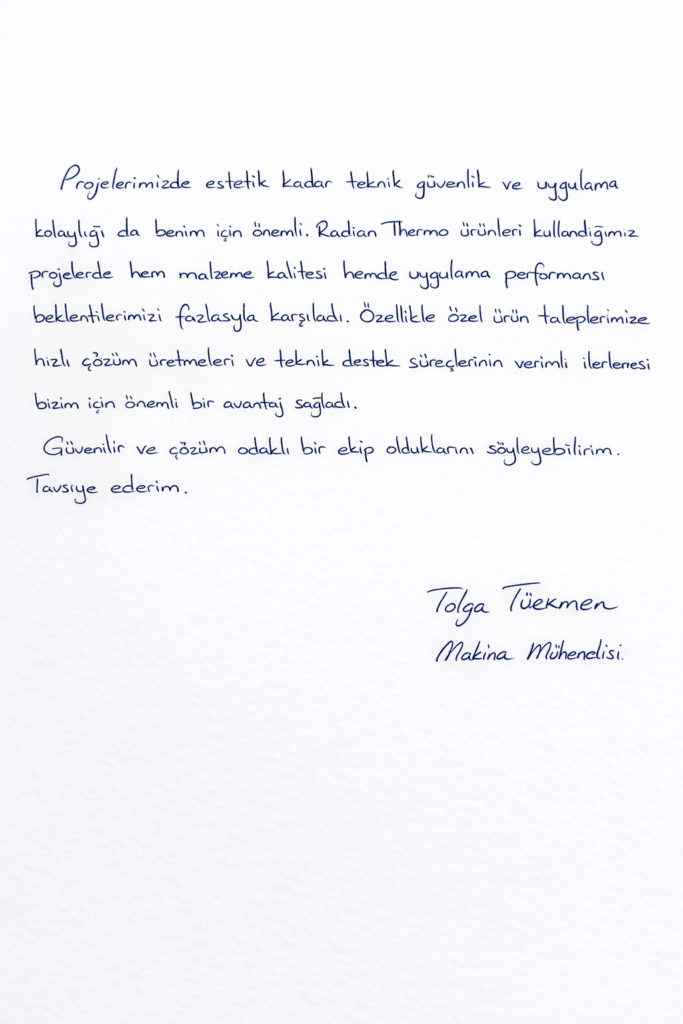 Projelerimizde estetik kadar teknik güvenlik ve uygulama
kolaylığı da benim için önemli. Radian Thermo ürünleri kullandığımız
projelerde hem malzeme kalitesi hemde uygulama performansı
beklentilerimizi fazlasıyla karşıladı. Özellikle özel ürün taleplerimize
hızlı çözüm üretmeleri ve teknik destek süreçlerinin verimli ilerlemesi
bizim için önemli bir avantaj sağladı.
Güvenilir ve çözüm odaklı bir ekip olduklarını söyleyebilirim.
Tavsiye ederim.
Tolga Tüekmen
Makina Mühendisi.